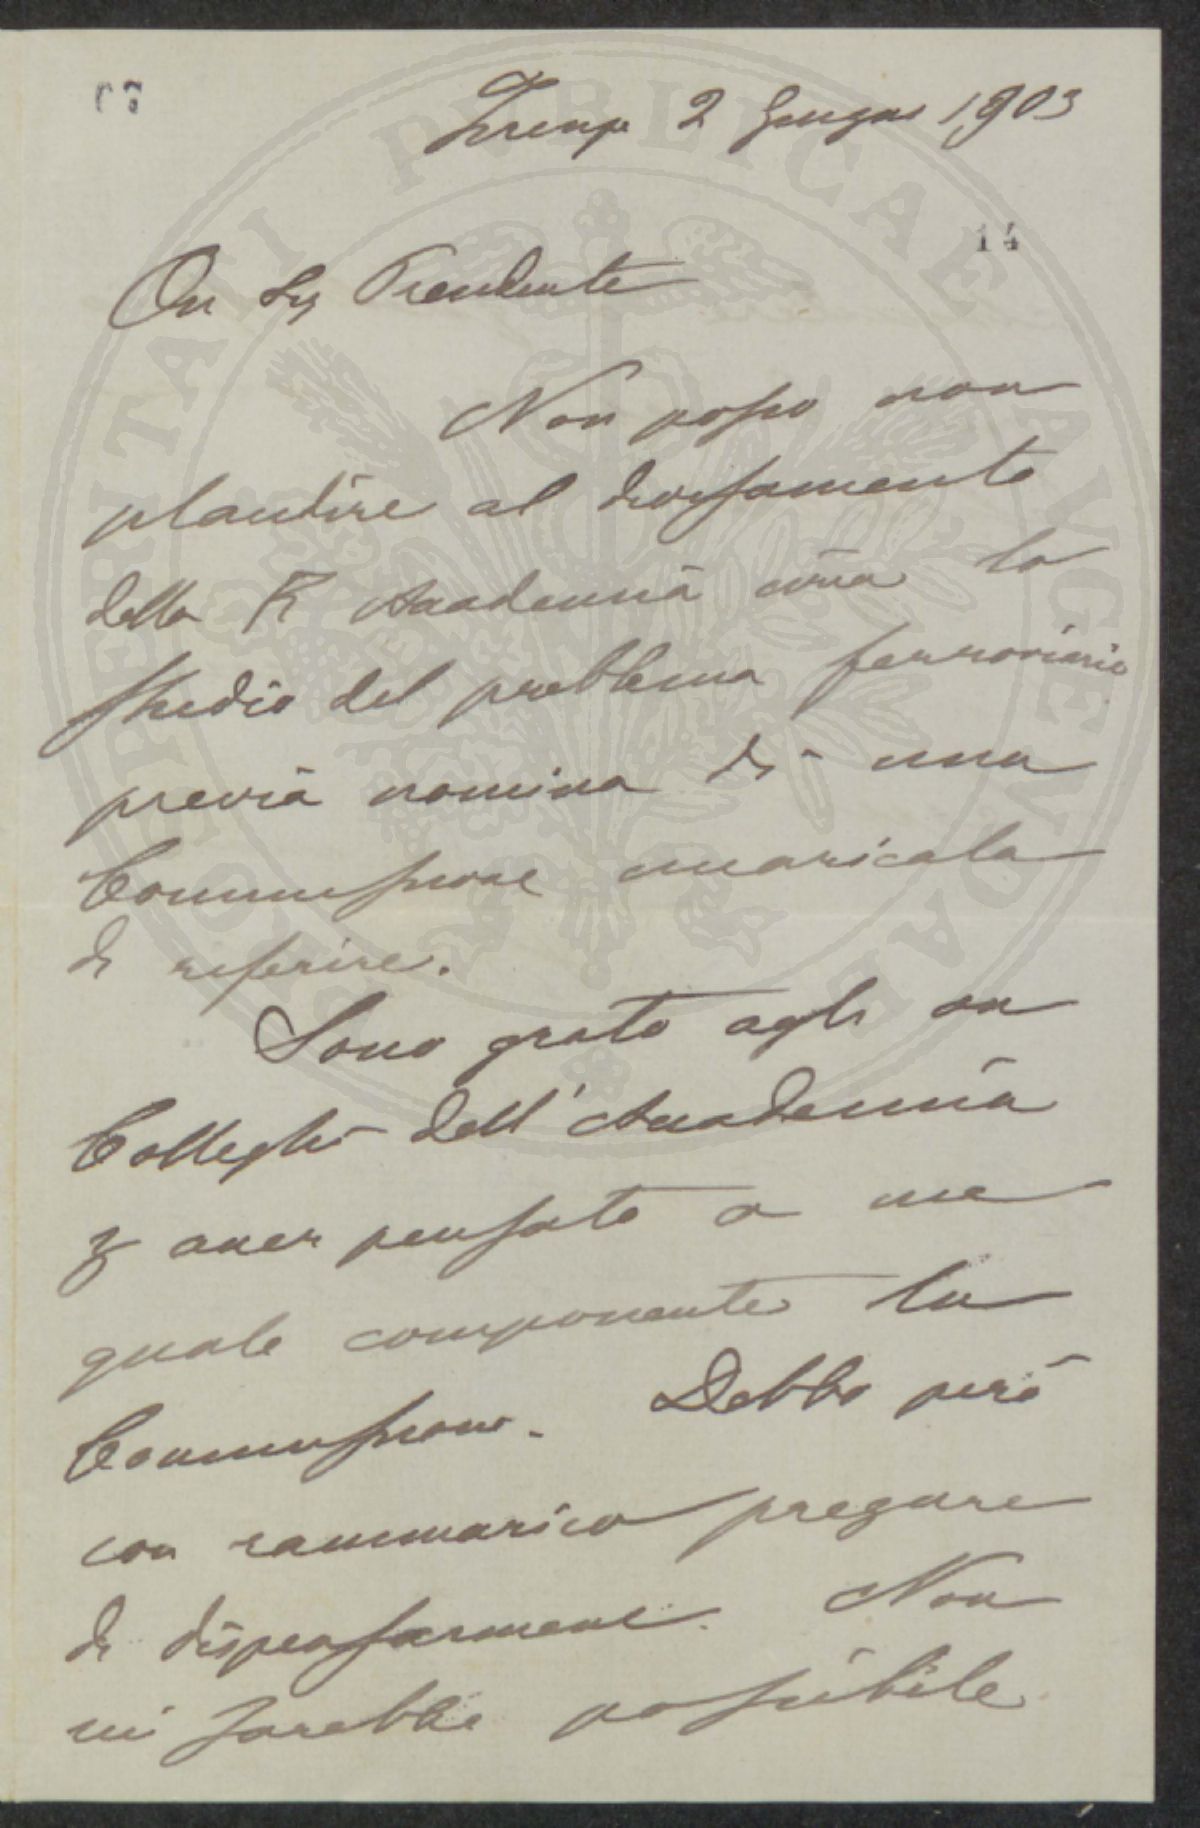 Firenze 2 Giugno 1903
14
On Sig Presidente
Non posso non
plaudire al divisamento
della R Accademia circa lo
studio del problema ferroviario
previa nomina di una
Commissione incaricata
di riferire.
Sono grato agli on
Colleghi dell'Accademia
aver pensato a me
quale componente la
Commissione. Debbo però
con rammarico pregare
di dispensarmene. Non
mi sarebbe possibile
PROSPERITATI PUBLICAE AUGENDAE